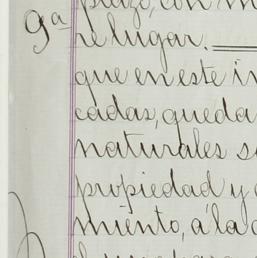 plazo, con
9ª
relugar.
que en este in
cadas, queda
naturales s
propiedad y
miento, á la